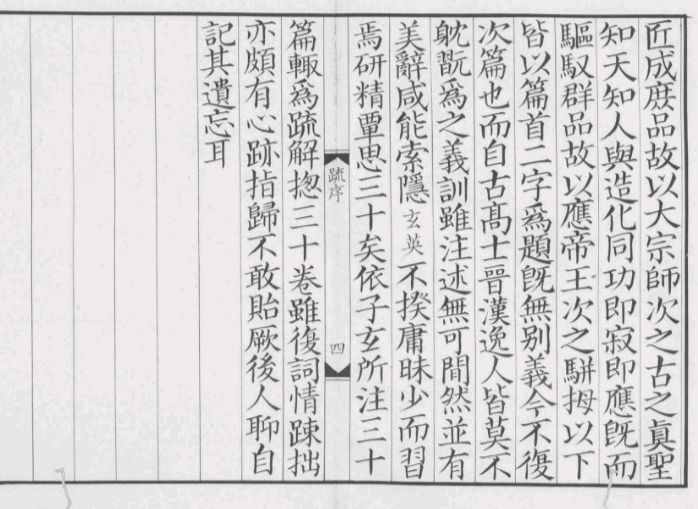 匠成庶品故以大宗師次之古之真聖
知天知人與造化同功即寂即應既而
驅馭群品故以應帝王次之駢拇以下
皆以篇首二字爲題既無别義今不復
次篇也而自古髙士晉漢逸人皆莫不
躭翫爲之義訓雖注述無可間然並有
美辭咸能索隱玄英不揆庸昧少而習
焉研精覃思三十矣依子玄所注三十
疏序 四
篇輙爲疏解揔三十卷雖復詞情踈拙
亦頗有心跡指歸不敢貽厥後人聊自
記其遺忘耳